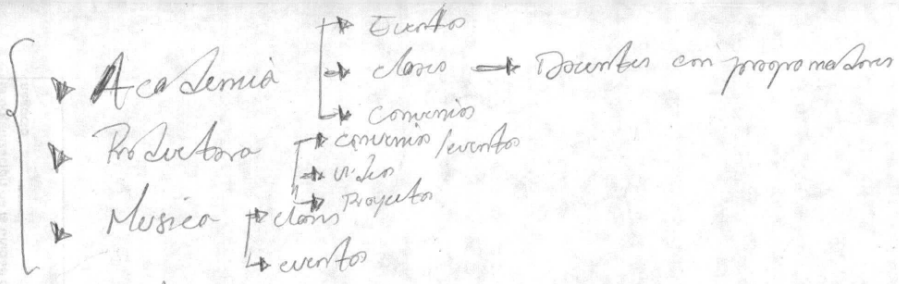 Eventos
Academia clases → Docentes con programadores
convenios
Productora convenios/eventos
video
Proyectos
Musica clases
eventos